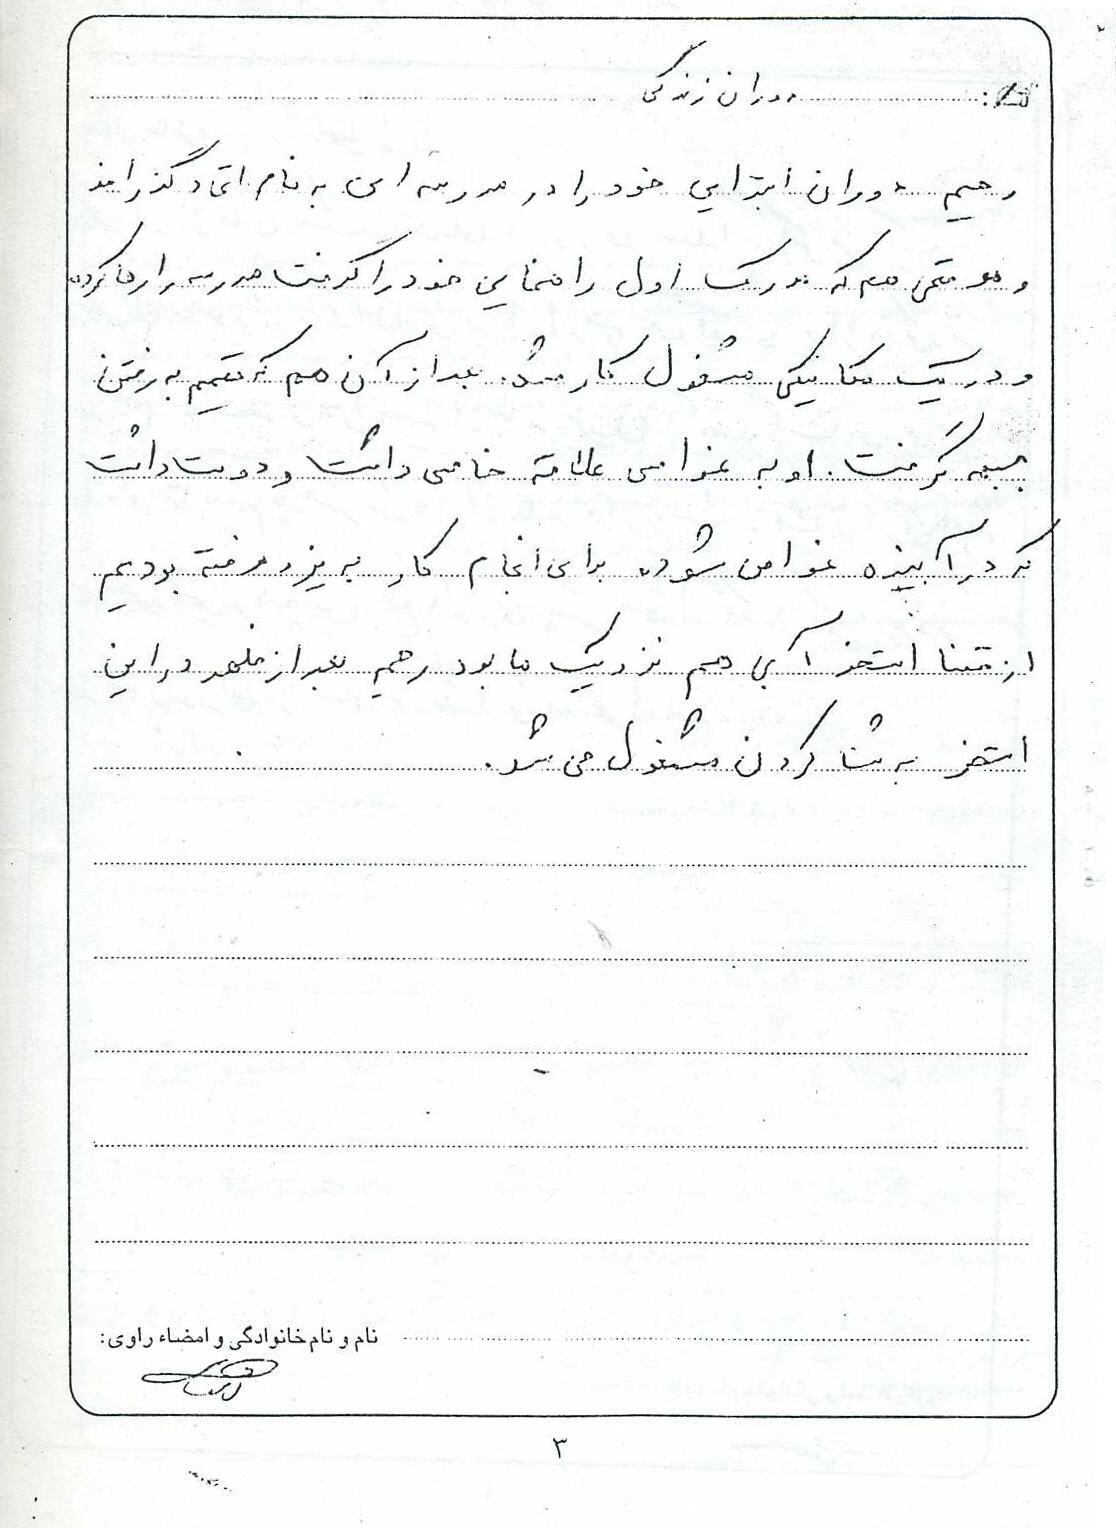 دوران زندگی
رحیم دوران ابتدایی خود را در مدرسه ای به نام اتحاد گذراند
و وقتی هم که مدرک اول راهنمایی خود را گرفت مدرسه را رها کرده
و در یک مکانیکی مشغول کار شد. بعد از آن هم که تصمیم به رفتن
جبهه گرفت. او به غواصی علاقه خاصی داشت و دوست داشت
که در آینده غواص شود. برای انجام کار به یزد رفته بودیم
از قضا استخر آبی هم نزدیک ما بود رحیم بعد از ظهر در این
استخر به شنا کردن مشغول می شد.
نام و نام خانوادگی و امضاء راوی:
۳